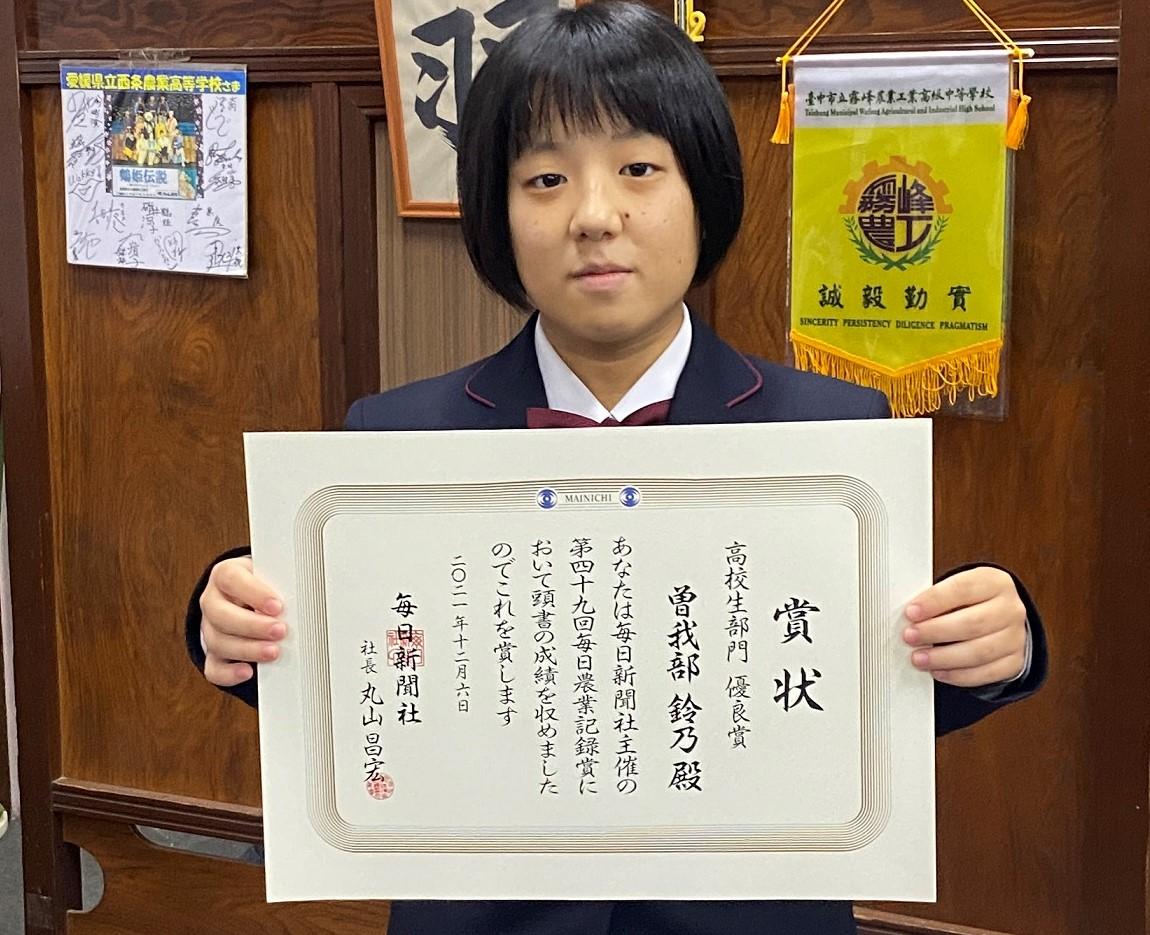 愛媛県立西条農業高等学校さま
鶴姫伝説
臺中市立霧峰農業工業高級中等學校
Taichung Municipal Wufeng Agricultural and Industrial High School
霧峰
農工
誠毅勤實
SINCERITY PERSISTENCY DILIGENCE PRAGMATISM
MAINICHI
賞状
高校生部門 優良賞
曽我部 鈴乃 殿
あなたは毎日新聞社主催の
第四十九回毎日農業記録賞に
おいて頭書の成績を収めました
のでこれを賞します
二〇二一年十二月六日
毎日新聞社
社長 丸山昌宏